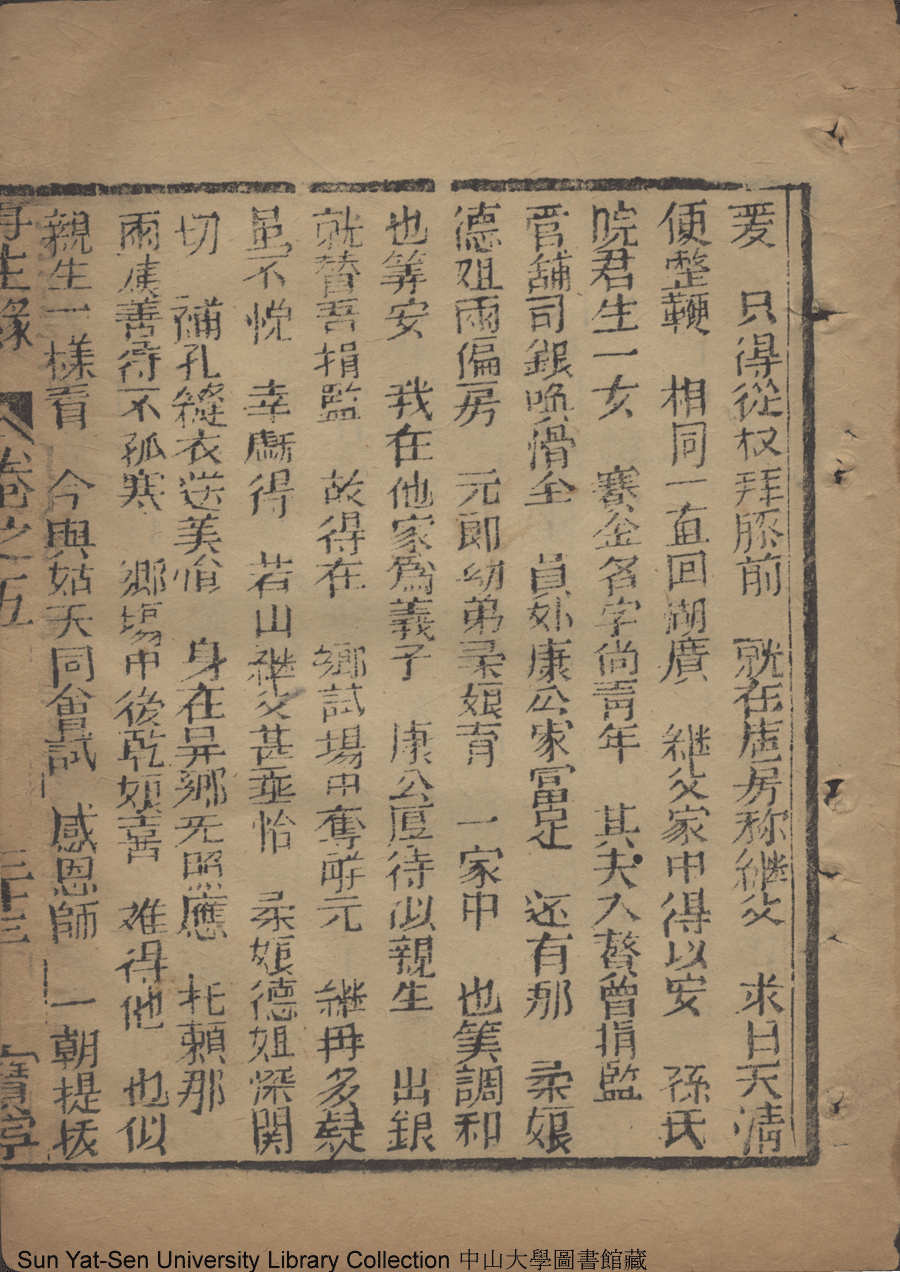 爰 只得從权拜膝前 就在店房称継父 求日天清
便整鞭 相同一直回湖廣 継父家中得以安 孫氏
院君生一女 賽金名字尚青年 其夫入贅曾捐監
官舖司銀喚滑全 員外康公家富足 还有那 柔娘
德姐兩偏房 元郎幼弟柔娘育 一家中 也筭調和
也筭安 我在他家為義子 康公厚待似親生 出銀
就替吾捐監 故得在 鄉試場中奪觧元 継母多疑
虽不悅 幸虧得 若山継父甚垂怡 柔娘德姐深関
切 補孔縫衣送美 身在异鄉无照應 托賴那
兩 善待不孤寒 鄉塲中後乾娘喜 难得他 也似
親生一樣看 今與姑夫同會試 感恩師 一朝提拔
再生緣 卷之五 三十三 寶寧